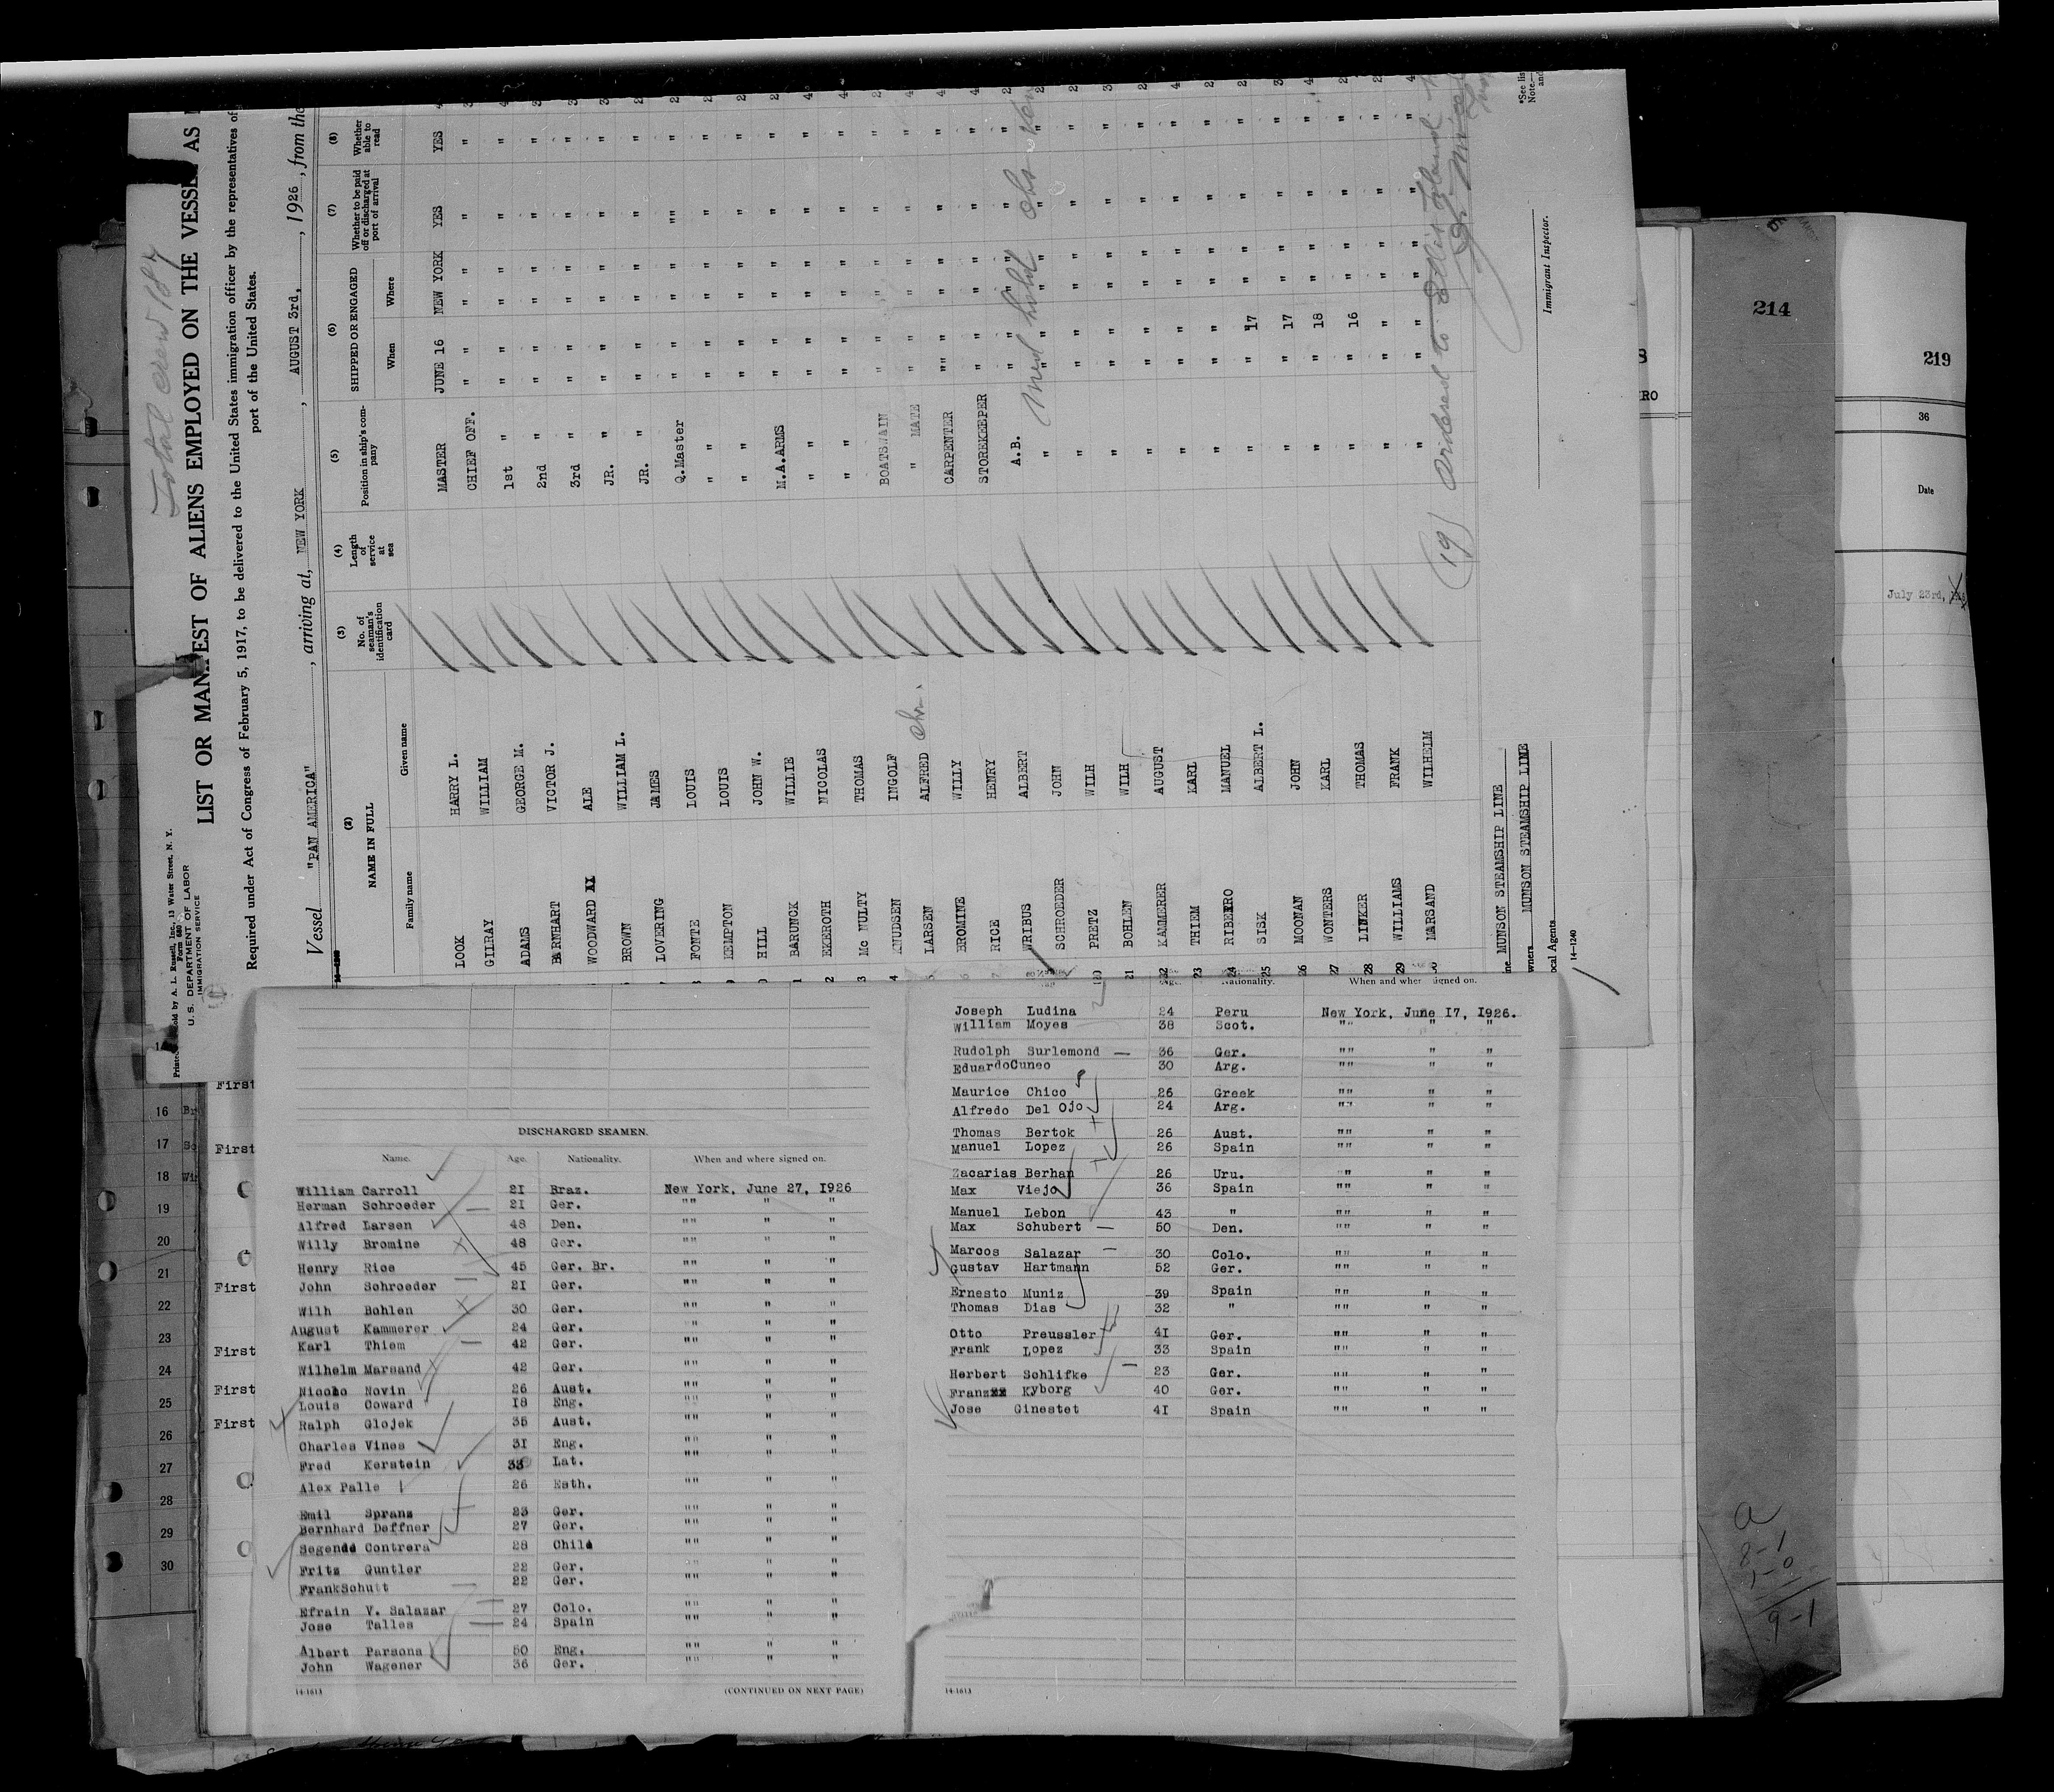 Total crew 187
LIST OR MANIFEST OF ALIENS EMPLOYED ON THE VESSEL AS
Required under Act of Congress of February 5, 1917, to be delivered to the United States immigration officer by the representatives of
port of the United States.
Vessel "PAN AMERICA", arriving at, NEW YORK, AUGUST 3rd, 1926, from the
old by A. L. Russell, Inc., 13 Water Street, N. Y.
Form 680
U. S. DEPARTMENT OF LABOR
IMMIGRATION SERVICE
(2) (3) (4) (5) (6) (7) (8)
NAME IN FULL No. of seaman's identification card Length of service at sea Position in ship's company SHIPPED OR ENGAGED Whether to be paid off or discharged at port of arrival Whether able to read
Family name Given name When Where
LOOK HARRY L. MASTER JUNE 16 NEW YORK YES YES
GILRAY WILLIAM CHIEF OFF. " " " "
ADAMS GEORGE M. 1st " " " " "
BARNHART VICTOR J. 2nd " " " " "
WOODWARD ALE 3rd " " " " "
BROWN WILLIAM L. JR. " " " " "
LOVERING JAMES JR. " " " " "
FONTE LOUIS Q.Master " " " "
KEMPTON LOUIS " " " " " "
HILL JOHN W. " " " " " "
BARUNCK WILLIE M.A.ARMS " " " "
EKEROTH NICOLAS " " " " " "
Mc NULTY THOMAS " " " " " "
KNUDSEN INGOLF BOATSWAIN " " " "
LARSEN ALFRED " MATE " " " "
BROMINE WILLY CARPENTER " " " "
RICE HENRY STOREKEEPER " " " "
WRIBUS ALBERT A.B. " " " "
SCHROEDER JOHN " " " " "
20 PRETZ WILH " " " " "
21 BOHLEN WILH " " " " "
22 KAMMERER AUGUST " " " " "
23 THIEM KARL " " " " "
24 RIBEIRO MANUEL " " " " "
25 SISK ALBERT L. " " 17 " " "
26 MOONAN JOHN " " 17 " " "
27 WONTERS KARL " " 18 " " "
28 LINKER THOMAS " " 16 " " "
29 WILLIAMS FRANK " " " " " "
MARSAND WILHELM " " " " " "
(19) Ordered to Ellis Island
MUNSON STEAMSHIP LINE
wners MUNSON STEAMSHIP LINE
ocal Agents
14-1240
Immigrant Inspector.
*See lis
Note—
and
DISCHARGED SEAMEN.
Name. Age. Nationality. When and where signed on.
William Carroll 21 Braz. New York, June 27, 1926
Herman Schroeder 21 Ger. "" " "
Alfred Larsen 48 Den. "" " "
Willy Bromine 48 Ger. "" " "
Henry Rice 45 Ger. Br. "" " "
John Schroeder 21 Ger. "" " "
Wilh Bohlen 30 Ger. "" " "
August Kammerer 24 Ger. " " "
Karl Thiem 42 Ger. "" " "
Wilhelm Marsand 42 Ger. "" " "
Novin 26 Aust. "" " "
Louis Coward 18 Eng. "" " "
Ralph Glojek 35 Aust. "" " "
Charles Vines 31 Eng. "" " "
Fred Kerstein 33 Lat. "" " "
Alex Palle 26 Esth. "" " "
Emil Spranz 23 Ger. "" " "
Bernhard Deffner 27 Ger. "" " "
Contrera 28 Chile "" " "
Fritz Guntler 22 Ger. " "
FrankSchutt 22 Ger. "" " "
Efrain V. Salazar 27 Colo. "" " "
Jose Talles 24 Spain "" " "
Albert Parsons 50 Eng. "" " "
John Wagener 36 Ger. "" " "
14-1613 (CONTINUED ON NEXT PAGE)
Nationality. When and where signed on.
Joseph Ludina 24 Peru New York, June 17, 1926.
William Moyes 38 Scot. "" " "
Rudolph Surlemond 36 Ger. "" " "
EduardoCuneo 30 Arg. "" " "
Maurice Chico 26 Greek "" " "
Alfredo Del Ojo 24 Arg. "" " "
Thomas Bertok 26 Aust. "" " "
Manuel Lopez 26 Spain "" " "
Zacarias Berhan 26 Uru. "" " "
Max Viejo 36 Spain "" " "
Manuel Lebon 43 " "" " "
Max Schubert 50 Den. "" " "
Marcos Salazar 30 Colo. "" " "
Gustav Hartmann 52 Ger. "" " "
Ernesto Muniz 39 Spain "" " "
Thomas Dias 32 " "" " "
Otto Preussler 41 Ger. "" " "
Frank Lopez 33 Spain "" " "
Herbert Schlifke 23 Ger. "" " "
Franz Kyborg 40 Ger. "" " "
Jose Ginestet 41 Spain "" " "
14-1613
First
16
17 First
18
19
20
21 First
22
23 First
24 First
25 First
26
27
28
29
30
214
219
36
Date
July 23rd,
8-1
9-1